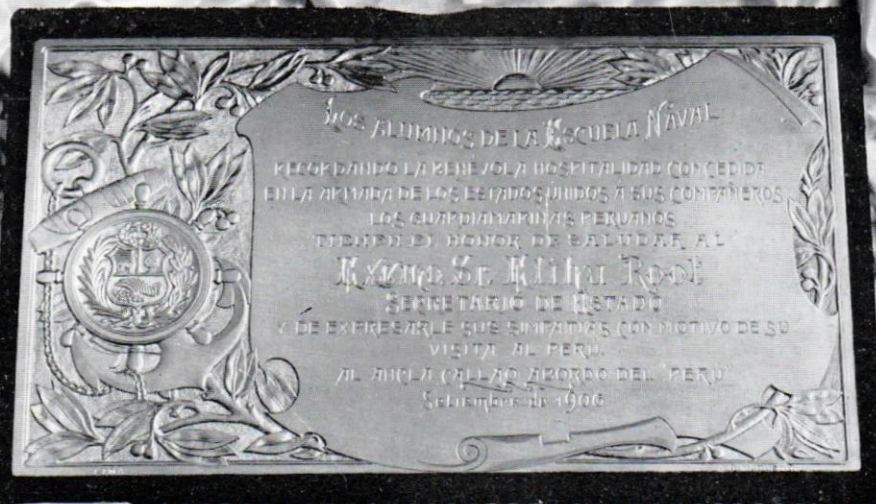 LOS ALUMNOS DE LA ESCUELA NAVAL
RECORDANDO LA BENEVOLA HOSPITALIDAD CONCEDIDA
EN LA ARMADA DE LOS ESTADOS UNIDOS A SUS COMPAÑEROS
LOS GUARDIAMARINAS PERUANOS
TIENEN EL HONOR DE SALUDAR AL
EXCMO. SR. ELIHU ROOT
SECRETARIO DE ESTADO
Y DE EXPRESARLE SUS SIMPATIAS CON MOTIVO DE SU
VISITA AL PERU.
AL ANCLA CALLAO ABORDO DEL "PERU"
Setiembre de 1906